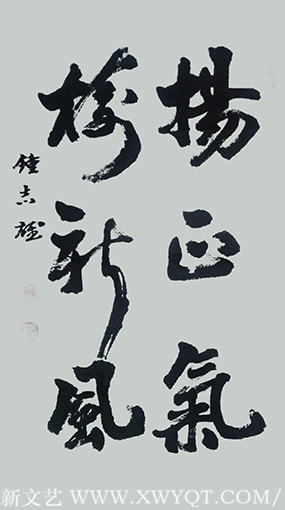 揚正氣
樹新風
新文艺 WWW.XWYQT.COM/